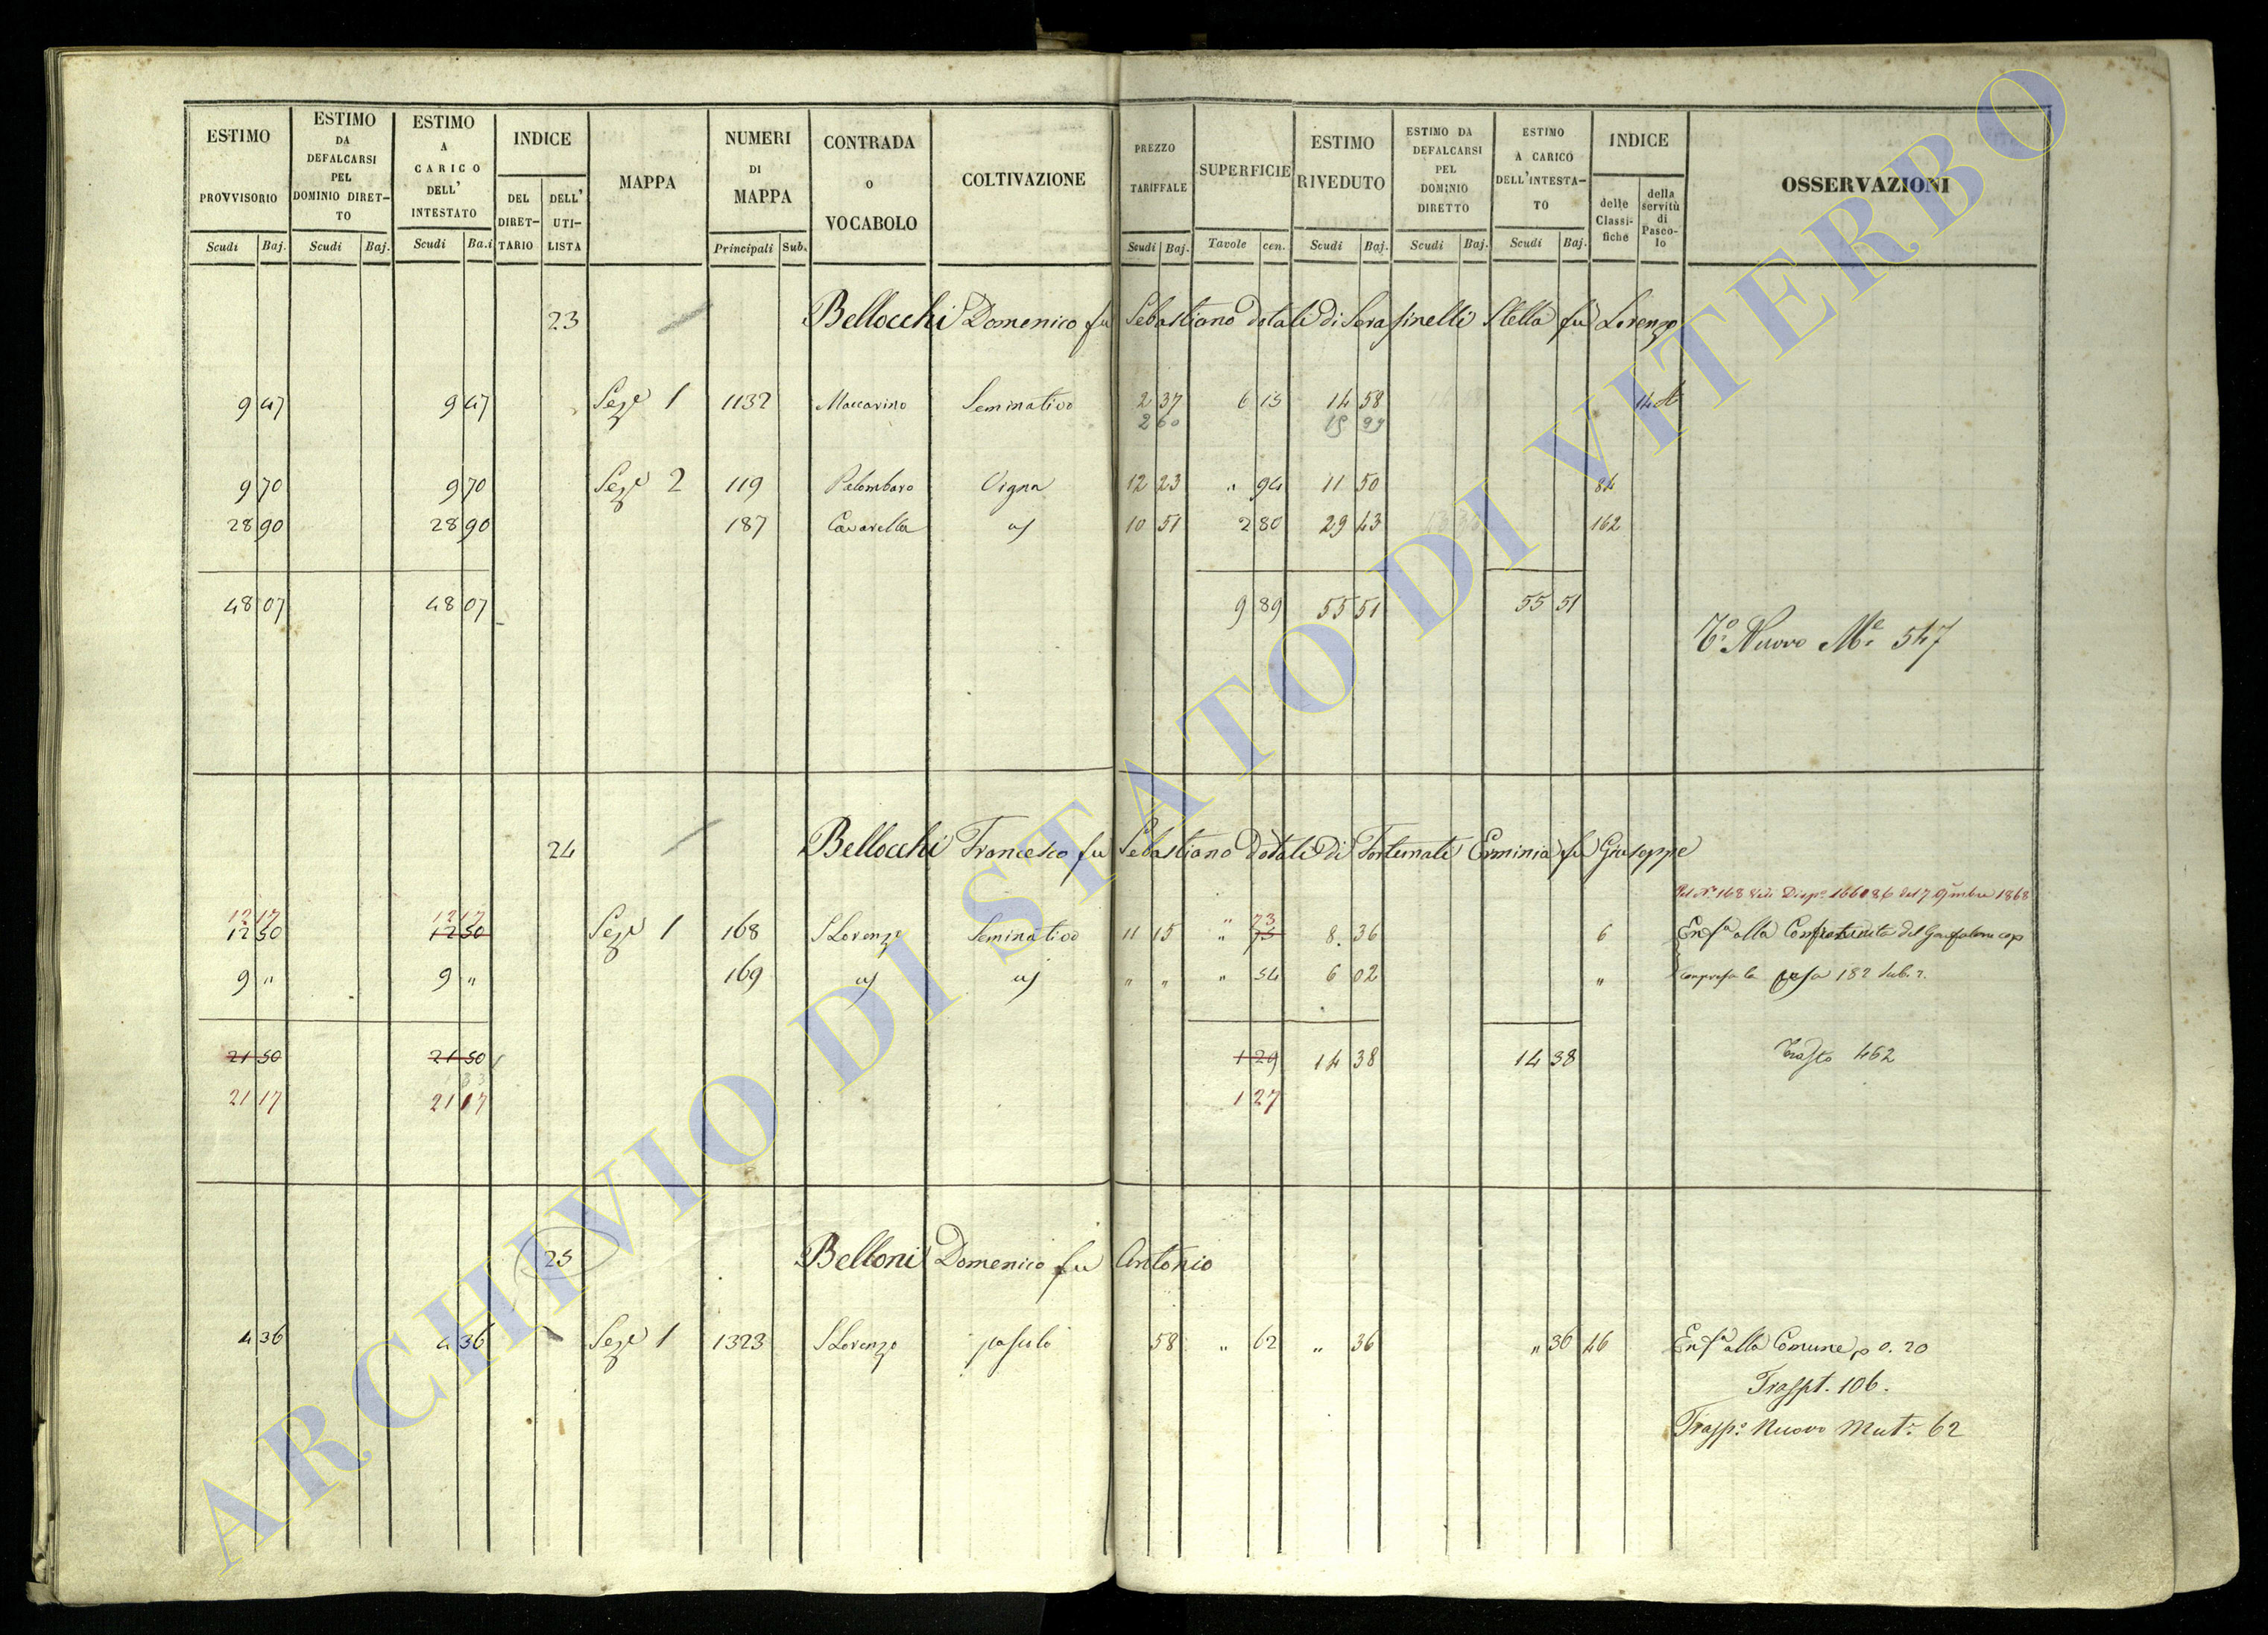 ESTIMO PROVVISORIO Scudi Baj. ESTIMO DA DEFALCARSI PEL DOMINIO DIRETTO Scudi Baj. ESTIMO A CARICO DELL' INTESTATO Scudi Ba.i INDICE DEL DIRETTARIO DELL' UTILISTA MAPPA NUMERI DI MAPPA Principali Sub. CONTRADA O VOCABOLO COLTIVAZIONE PREZZO TARIFFALE Scudi Baj. SUPERFICIE Tavole cen. ESTIMO RIVEDUTO Scudi Baj. ESTIMO DA DEFALCARSI PEL DOMINIO DIRETTO Scudi Baj. ESTIMO A CARICO DELL'INTESTATO Scudi Baj. INDICE delle Classifiche della servitù di Pascolo OSSERVAZIONI
23 Bellocchi Domenico fu Sebastiano dotali di Serafinelli Stella fu Lorenzo
9 47 9 47 Sez.e 1 1132 Maccarino Seminativo 2 37 6 15 14 58 14
2 60 15 99
9 70 9 70 Sez.e 2 119 Palombaro Vigna 12 23 " 94 11 50 84
28 90 28 90 187 Cavarella 10 51 2 80 29 43 162
48 07 48 07 9 89 55 51 55 51
T.o Nuovo M.e 547
24 Bellocchi Francesco fu Sebastiano Dotali di Fortunati Erminia fu Giuseppe
Pel N.o 168 Vedi Disp.o 166086 del 7 9mbre 1868
12 17 12 17 " 73
12 50 12 50 Sez.e 1 168 S Lorenzo Seminativo 11 15 " 75 8 36 6 Enf.a alla Confraternita del Gonfalone
9 " 9 " 169 " " " 54 6 02 " compresa la casa 182 sub. 2.
21 50 21 50 1 29 14 38 14 38 Trasto 462
21 17 21 17 1 27
25 Belloni Domenico fu Antonio
4 36 4 36 Sez.e 1 1323 S Lorenzo pascolo 58 " 62 " 36 " 36 46 Enf.a alla Comune p 0. 20
Traspt. 106.
Trasp.o Nuovo Mut.e 62
ARCHIVIO DI STATO DI VITERBO